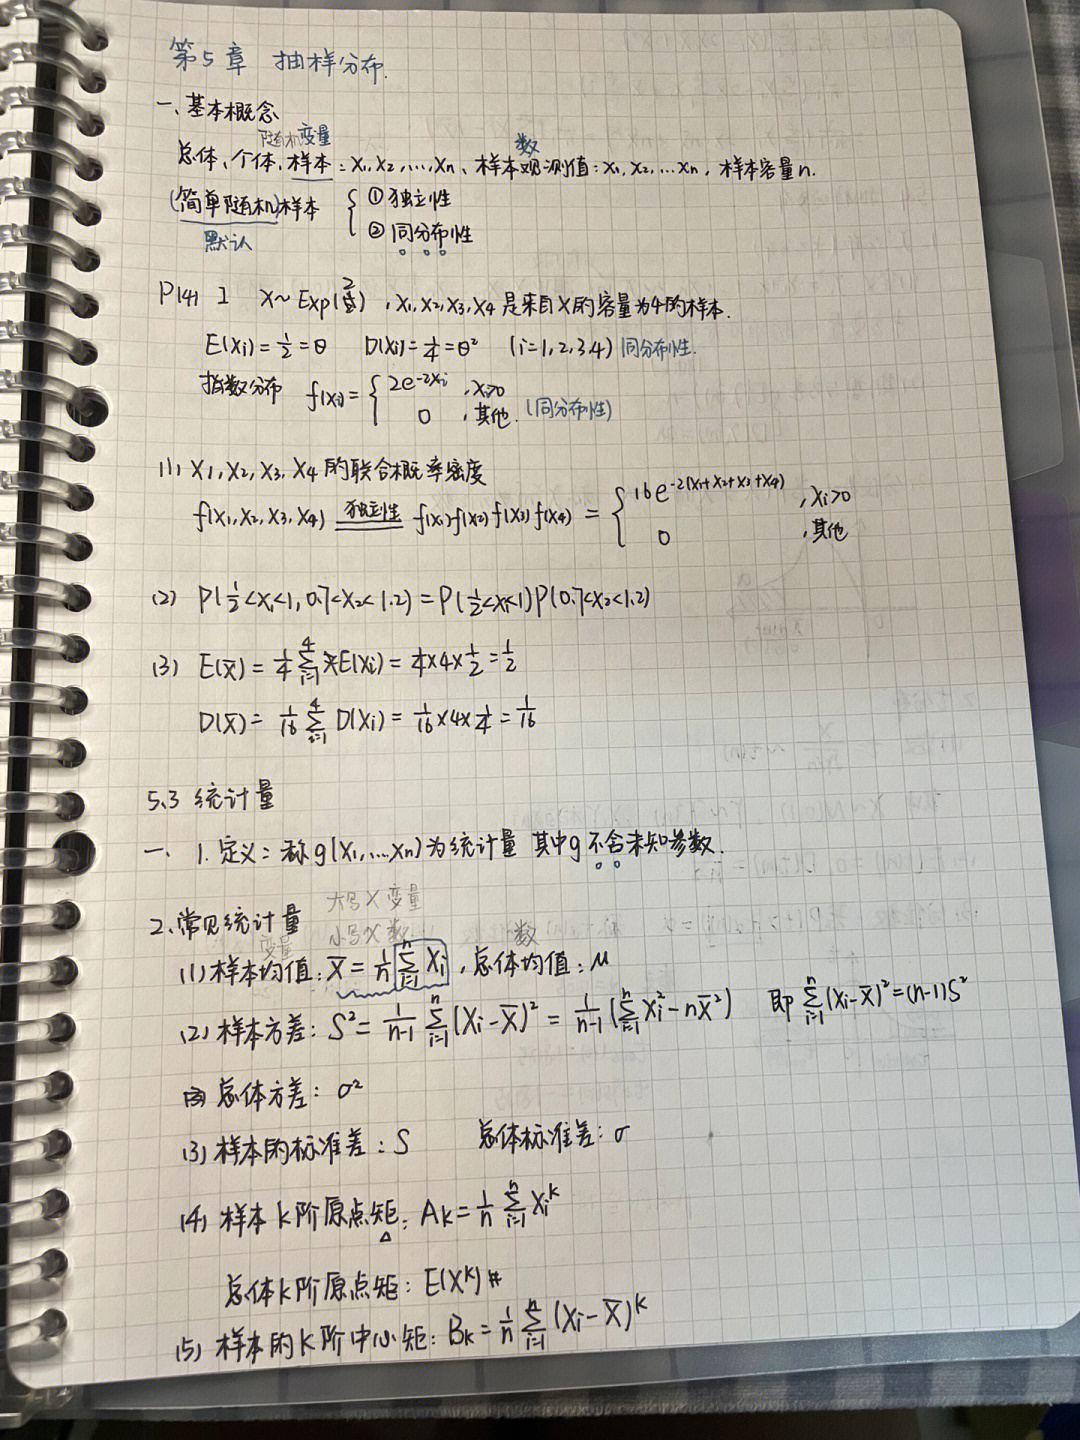 第5章 抽样分布.
一、基本概念
随机变量 数
总体、个体、样本：X₁, X₂, …, Xn、样本观测值：x₁, x₂, … xn, 样本容量n.
(简单随机)样本 { ① 独立性
② 同分布性
默认
P141 1 X~Exp(2), X₁, X₂, X₃, X₄ 是来自X的容量为4的样本.
E(Xi) = 1/2 = θ D(Xi) = 1/4 = θ² (i=1,2,3,4) 同分布性.
指数分布 f(xi) = { 2e^(-2xi) , xi>0
0 , 其他. (同分布性)
(1) X₁, X₂, X₃, X₄ 的联合概率密度
f(x₁, x₂, x₃, x₄) 独立性 f(x₁) f(x₂) f(x₃) f(x₄) = { 16e^(-2(x₁+x₂+x₃+x₄)) , xi>0
0 , 其他
(2) P(1/2<X₁<1, 0.7<X₂<1.2) = P(1/2<X₁<1)P(0.7<X₂<1.2)
(3) E(X̄) = 1/4 ∑(i=1→4) E(Xi) = 1/4×4×1/2 = 1/2
D(X̄) = 1/16 ∑(i=1→4) D(Xi) = 1/16×4×1/4 = 1/16
5.3 统计量
一、1. 定义：称g(X₁, … Xn)为统计量 其中g不含未知参数.
大写X变量
2、常见统计量
小写X数
变量 数
(1) 样本均值：X̄ = 1/n ∑(i=1→n) Xi, 总体均值：μ
(2) 样本方差：S² = 1/(n-1) ∑(i=1→n) (Xi-X̄)² = 1/(n-1) (∑(i=1→n) Xi² - nX̄²) 即 ∑(i=1→n) (Xi-X̄)² = (n-1)S²
总体方差：σ²
(3) 样本的标准差：S 总体标准差：σ
(4) 样本k阶原点矩：Ak = 1/n ∑(i=1→n) Xi^k
总体k阶原点矩：E(X^k)
(5) 样本的k阶中心矩：Bk = 1/n ∑(i=1→n) (Xi-X̄)^k